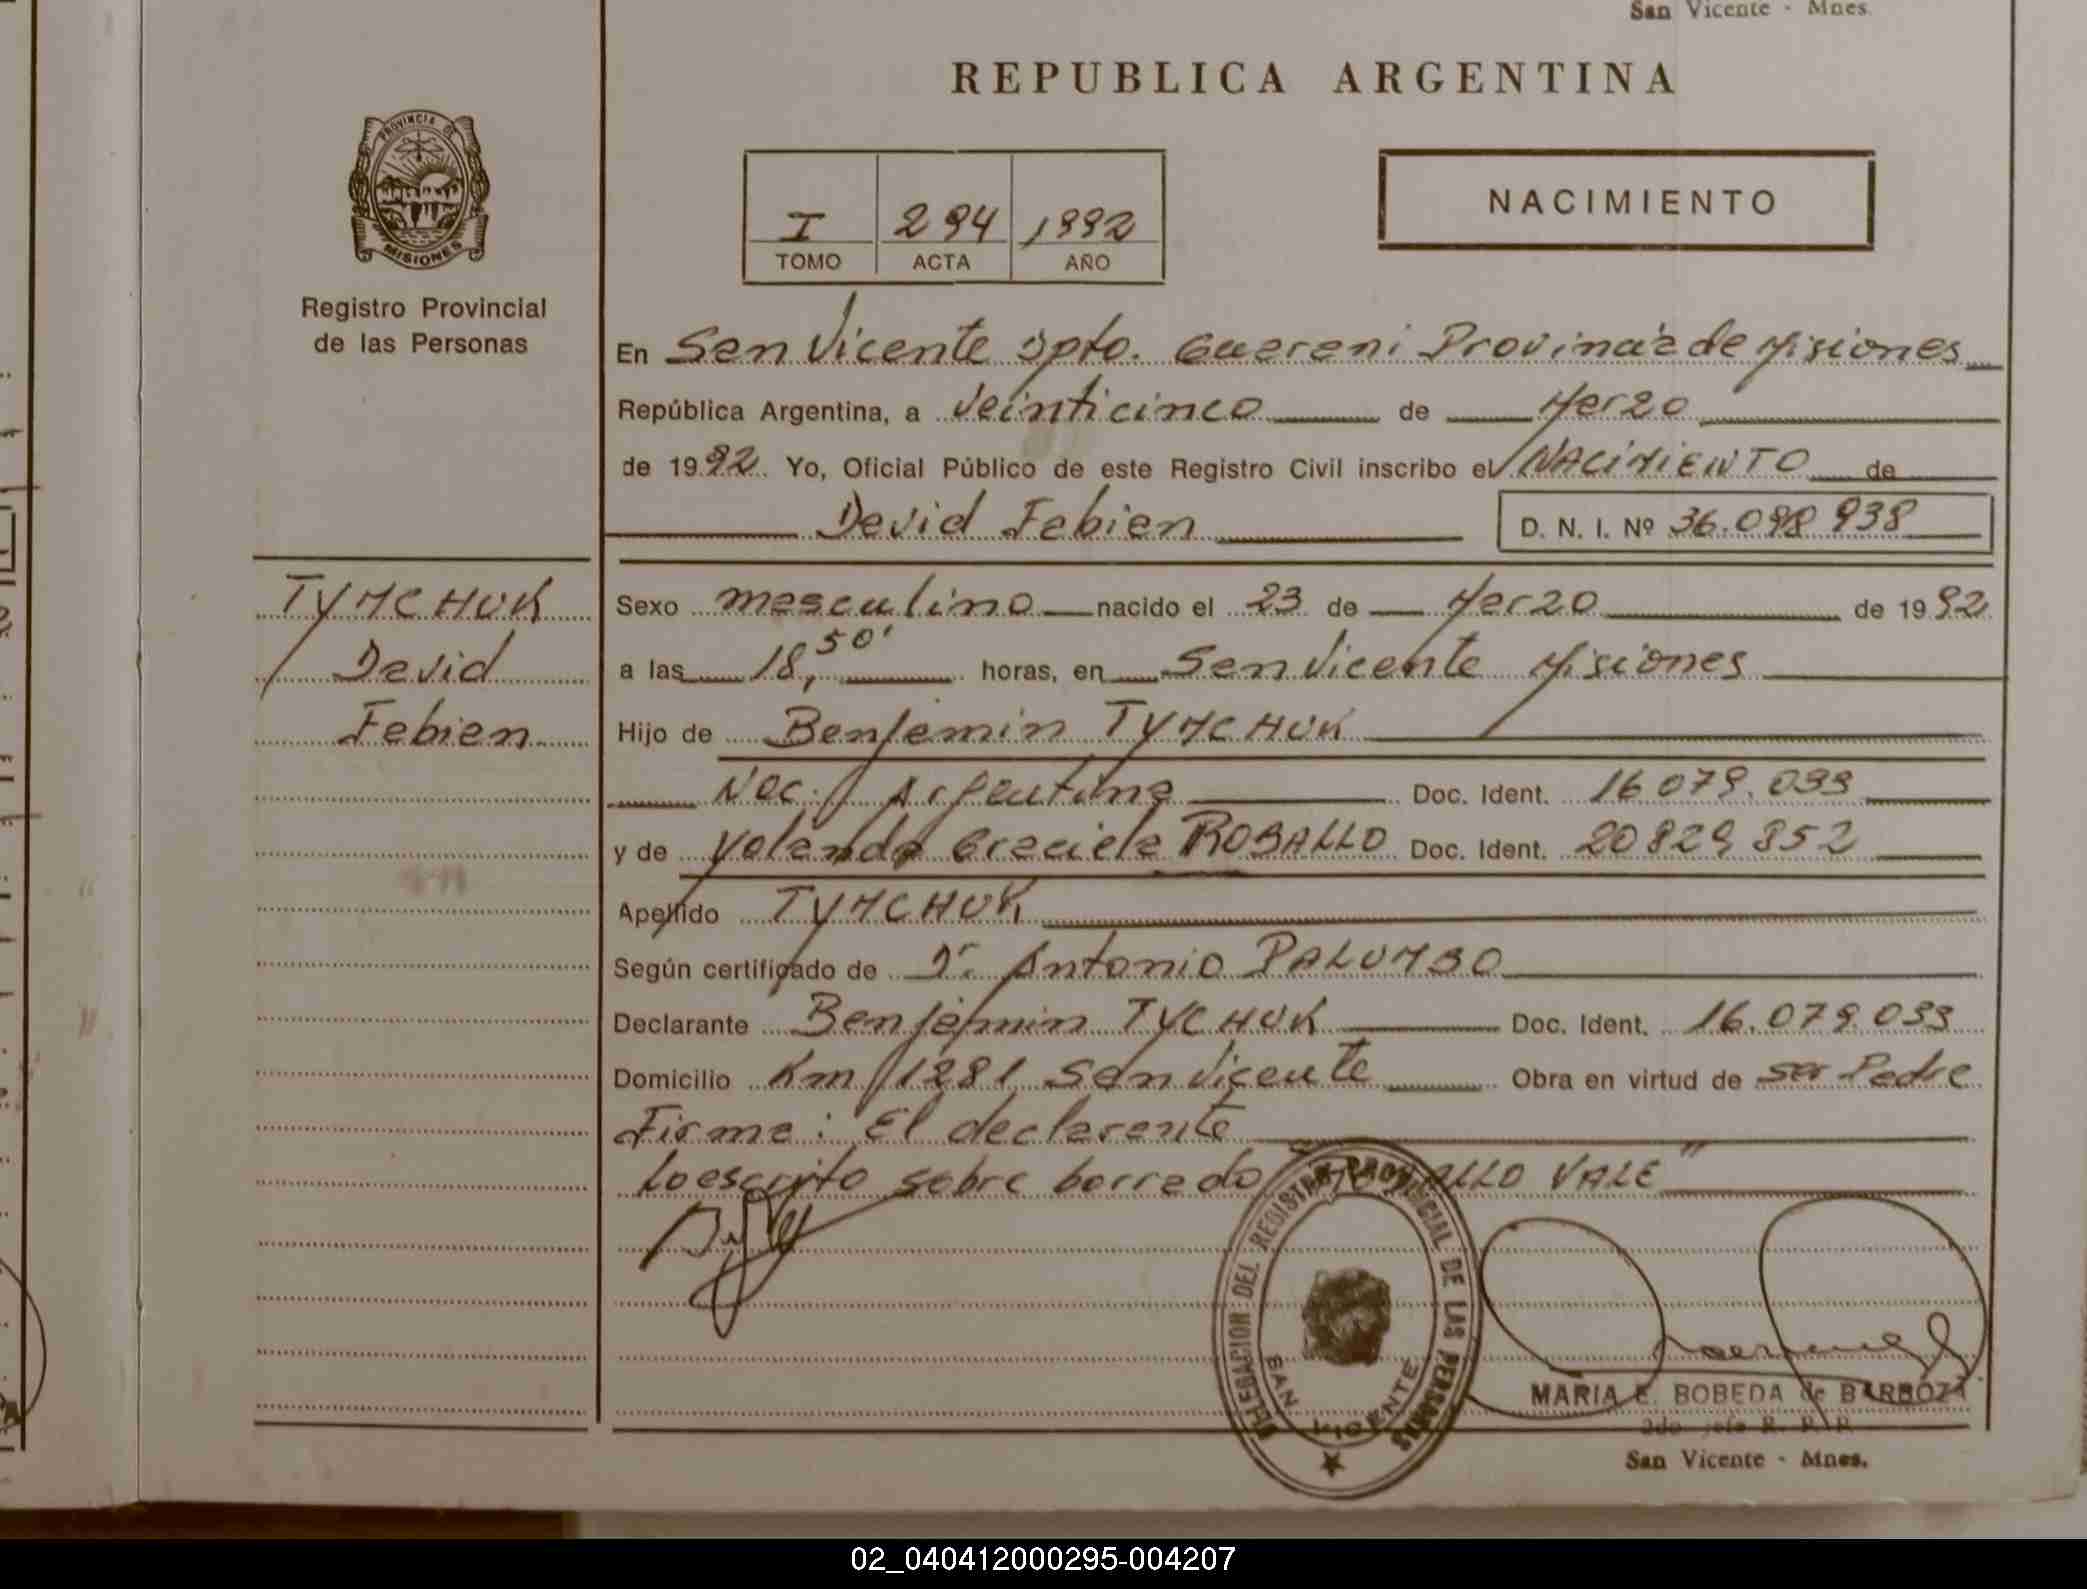 San Vicente - Mnes.
REPUBLICA ARGENTINA
PROVINCIA DE
MISIONES
Registro Provincial
de las Personas
I 294 1992
TOMO ACTA AÑO
NACIMIENTO
En San Vicente Dpto. Guarani Provincia de Misiones
República Argentina, a Veinticinco de Marzo
de 1992. Yo, Oficial Público de este Registro Civil inscribo el NACIMIENTO de
David Fabian D. N. I. Nº 36.098 938
TYMCHUK
David
Fabian
Sexo masculino nacido el 23 de Marzo de 1992
a las 18,50' horas, en San Vicente Misiones
Hijo de Benjamin TYMCHUK
Nac. Argentina Doc. Ident. 16 079.033
y de Yolanda Graciela ROBALLO Doc. Ident. 20829 852
Apellido TYMCHUK
Según certificado de Dr. Antonio PALUMBO
Declarante Benjamin TYCHUK Doc. Ident. 16.079.033
Domicilio Km 1281 San Vicente Obra en virtud de ser Padre
Firma: El declarante
Lo escrito sobre borrado "ROBALLO VALE"
DELEGACION DEL REGISTRO PROVINCIAL DE LAS PERSONAS
SAN VICENTE
MARIA E. BOBEDA de BARBOZA
2do jefe R. P. P.
San Vicente - Mnes.
02_040412000295-004207